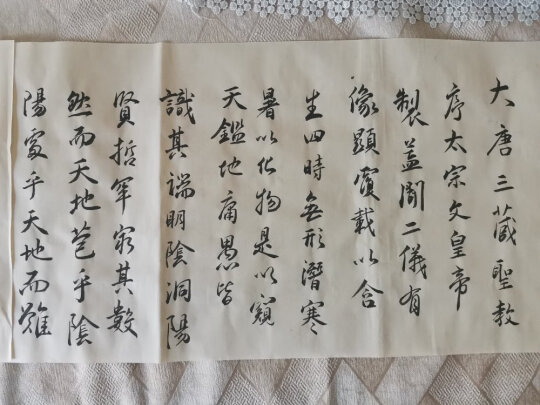 大唐三藏聖教
序太宗文皇帝
製蓋聞二儀有
像顯覆載以含
生四時無形潛寒
暑以化物是以窺
天鑑地庸愚皆
識其端明陰洞陽
賢哲罕窮其數
然而天地苞乎陰
陽處乎天地而難